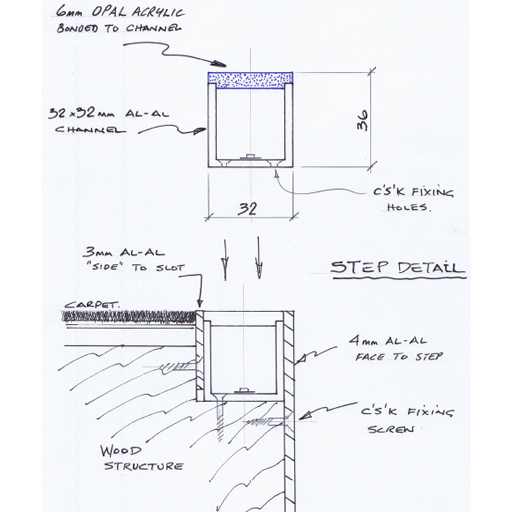 6mm OPAL ACRYLIC
BONDED TO CHANNEL
32x32mm AL-AL
CHANNEL
36
C'S'K FIXING
HOLES.
32
3mm AL-AL
"SIDE" TO SLOT
STEP DETAIL
CARPET.
4mm AL-AL
FACE TO STEP
C'S'K FIXING
SCREW
WOOD
STRUCTURE